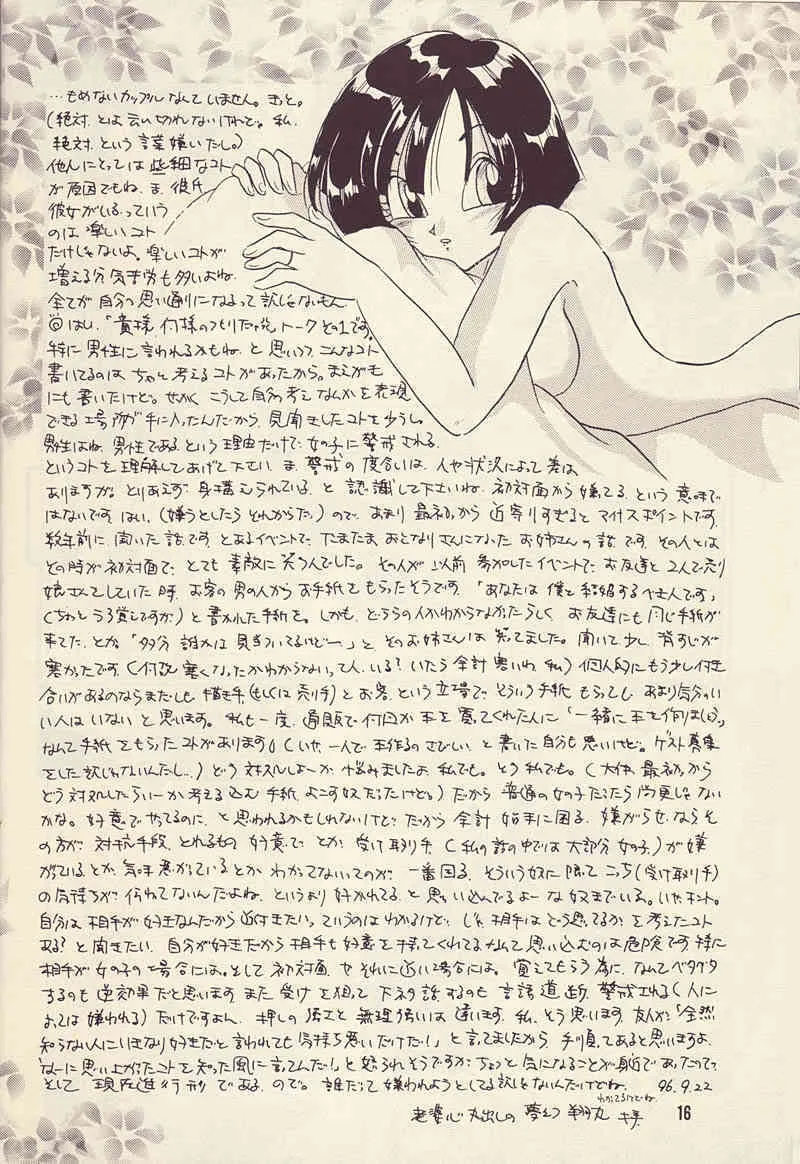 …もめないカップルなんていません。きっと。
(絶対、とは云い切れないけれど。私、
絶対、という言葉嫌いだし。)
他人にとっては些細なコト
が原因でもね、ま、彼氏
彼女がいるっていう
のは楽しいコト
だけじゃないよ。楽しいコトが
増える分気苦労も多いよね。
全てが自分の思い通りになるって訳じゃないもん。
◎はい、「貴様、何様のつもりだっ!!」トークその1です。
特に男性に言われるかもね、と思いつつ、こんなコト
書いてるのはちょっと考えるコトがあったから。まえがき
にも書いたけど。せっかくこうして自分の考えなんかを表現
できる場所が手に入ったんだから、見聞きしたコトを少うし。
男性はね、男性であるという理由だけで女の子に警戒される、
というコトを理解してあげて下さい。ま、警戒の度合いは、人や状況によって差は
ありますが。とりあえず身構えられている、と認識して下さいね。初対面から嫌ってる、という意味で
はないです、はい。(嫌うとしたらそれからだ。)ので、あまり最初から近寄りすぎるとマイナスポイントです。
数年前に聞いた話です。とあるイベントで、たまたまおとなりさんになったお姉さんの話です。その人とは
その時が初対面で、とても素敵に笑う人でした。その人が以前参加したイベントでお友達と2人で売り
娘さんをしていた時、お客の男の人からお手紙をもらったそうです。「あなたは僕と結婚するべき人です」
(ちょっとうろ覚えですが)と書かれた手紙を。しかも、どちらの人かわからなかったらしく、お友達にも同じ手紙が
来てた、とか。「多分誰かは見当ついてるけどー」と、そのお姉さんは笑ってました。聞いて少し、背すじが
寒かったです。(何故寒くなったかわからないって人、いる?いたら余計悪いわ、私)個人的にもう少し付き
合いがあるのならまだしも、描き手(もしくは売り手)とお客、という立場でそういう手紙もらっても、あまり気分のい
い人はいないと思います。私も一度、通販で何回か本を買ってくれた人に「一緒に本を作りましょう」
なんて手紙をもらったコトがあります。(いや、一人で本作るのさびしい、と書いた自分も悪いけど。ゲスト募集
をした訳じゃないんだし…)どう対処しよーか悩みましたよ、私でも。そう私でも。(大体、最初から
どう対処したらいーか考え込む手紙、よこす奴だったけど。)だから普通の女の子だったら尚更じゃない
かな。好意でやってるのに、と思われるかもしれないけど、だから余計始末に困る。嫌がらせならそ
の方が対抗手段、とれるもの。好意で、とか、受け取り手(私の話の中では大部分女の子)が嫌
がっているとか、気味悪がっているとか、わかってないってのが一番困る。そういう奴に限ってこっち(受け取り手)
の気持ちが伝わってないんだよね。というより好かれてる、と思い込んでるよーな奴までいる。いや、ホント。
自分は相手が好きなんだから近付きたい、っていうのはわかるけど、じゃ、相手はどう思ってるかを考えたコト
ある?と聞きたい。自分が好きだから相手も好意を持ってくれてるなんて思い込むのは危険です。特に
相手が女の子の場合には。そして初対面、やそれに近い場合には。覚えてもらう為に、なんてベタベタ
するのも逆効果だと思います。また受けを狙って下ネタ話するのも言語道断。警戒される(人に
よっては嫌われる)だけですよん。押しの強さと無理強いは違います。私、そう思います。友人が「全然
知らない人にいきなり好きだと言われても気持ち悪いだけだー!」と言ってましたから、手順ってあると思いますよ。
「なーに思い上がったコトを知った風に言ってんだー!」と怒られそうですが、ちょっと気になることが身近であったので。
そして現在進行形である、ので。誰だって嫌われようとしてる訳じゃないんだけどね。 96.9.22
わかってるけどね。
老婆心丸出しの 夢幻 翔丸 拝
16